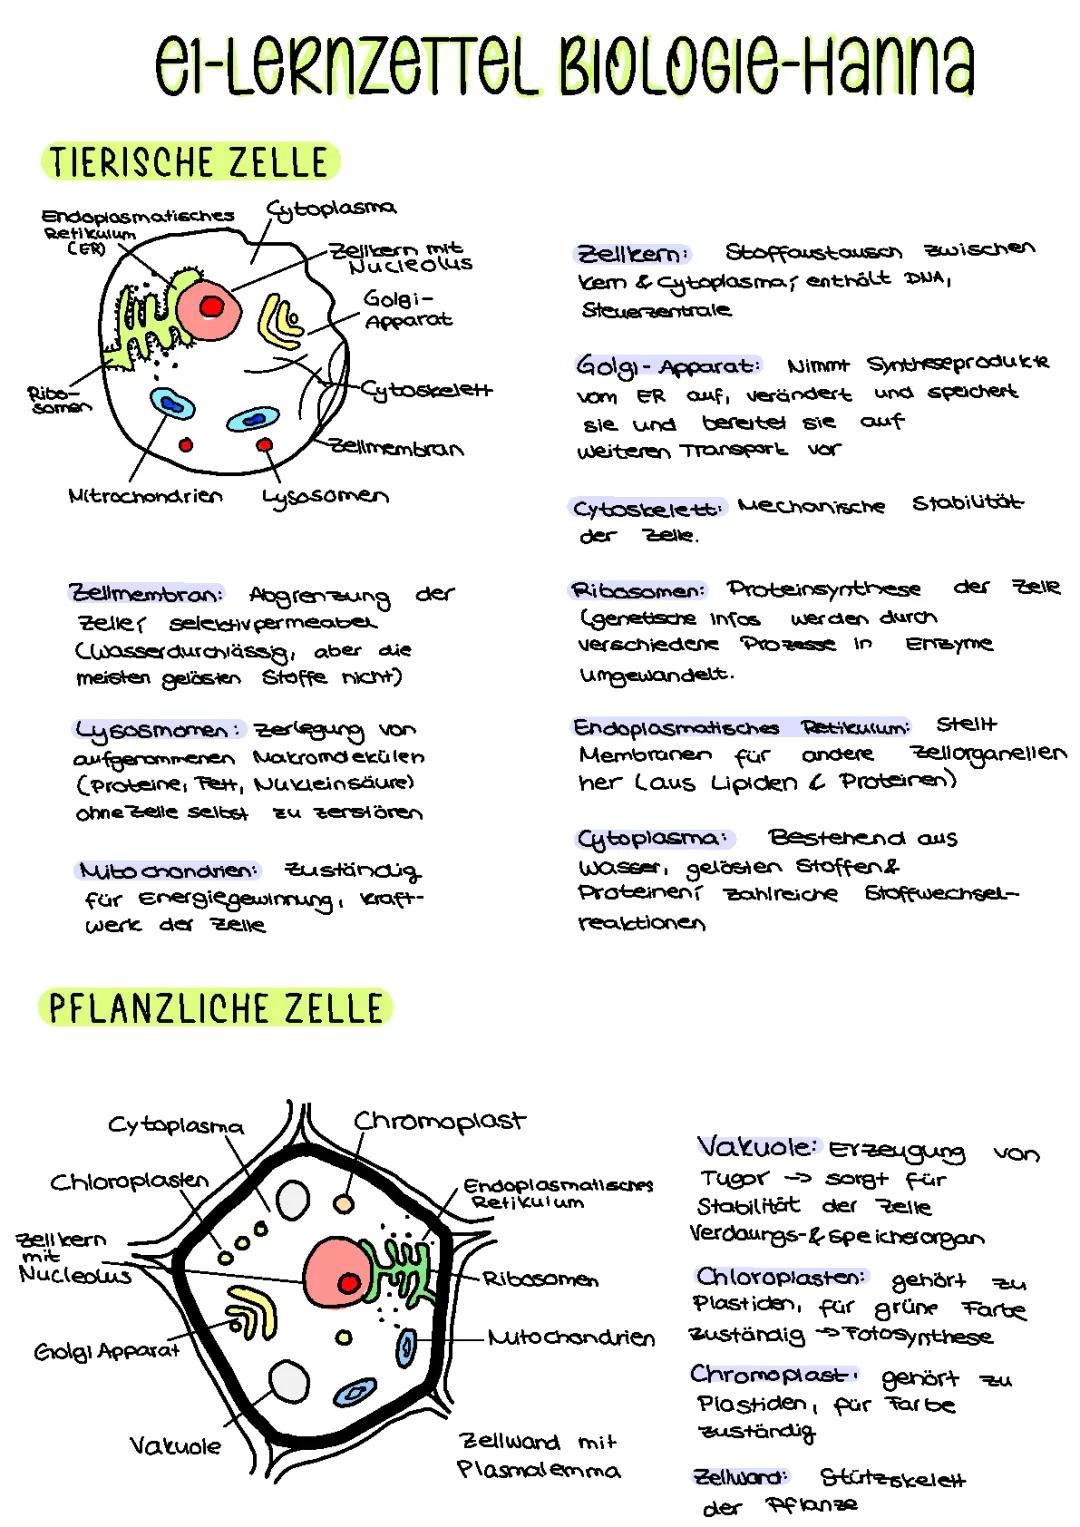 e1-LERNZETTEL BIOLOGIE-Hanna
TIERISCHE ZELLE
Endoplasmatisches
Retikulum
(ER)
Cytoplasma
Zellkern mit
Nucleolus
Golgi-
Apparat
Ribo-
somen
Cytoskelett
Zellmembran
Mitrochondrien
Lysosomen
Zellkern: Stoffaustausch zwischen
Kern & Cytoplasma; enthält DNA,
Steuerzentrale
Golgi-Apparat: Nimmt Syntheseprodukte
vom ER auf, verändert und speichert
sie und bereitet sie auf
weiteren Transport vor
Cytoskelett: Mechanische Stabilität
der Zelle.
Zellmembran: Abgrenzung der
Zelle; selektivpermeabel
(Wasserdurchlässig, aber die
meisten gelösten Stoffe nicht)
Lysosmomen: Zerlegung von
aufgenommenen Makromolekülen
(Proteine, Fett, Nukleinsäure)
ohne Zelle selbst zu zerstören
Mitochondrien: Zuständig
für Energiegewinnung, Kraft-
werk der Zelle
Ribosomen: Proteinsynthese der Zelle
(genetische Infos werden durch
verschiedene Prozesse in Enzyme
umgewandelt.
Endoplasmatisches Retikulum: Stellt
Membranen für andere Zellorganellen
her (aus Lipiden & Proteinen)
Cytoplasma: Bestehend aus
Wasser, gelösten Stoffen &
Proteinen; zahlreiche Stoffwechsel-
reaktionen
PFLANZLICHE ZELLE
Cytoplasma
Chromoplast
Chloroplasten
Endoplasmatisches
Retikulum
Zellkern
mit
Nucleolus
Ribosomen
Golgi Apparat
Mitochondrien
Vakuole
Zellwand mit
Plasmalemma
Vakuole: Erzeugung von
Tugor -> sorgt für
Stabilität der Zelle
Verdaungs-& Speicherorgan
Chloroplasten: gehört zu
Plastiden, für grüne Farbe
zuständig -> Fotosynthese
Chromoplast: gehört zu
Plastiden, für Farbe
zuständig
Zellwand: Stützskelett
der Pflanze